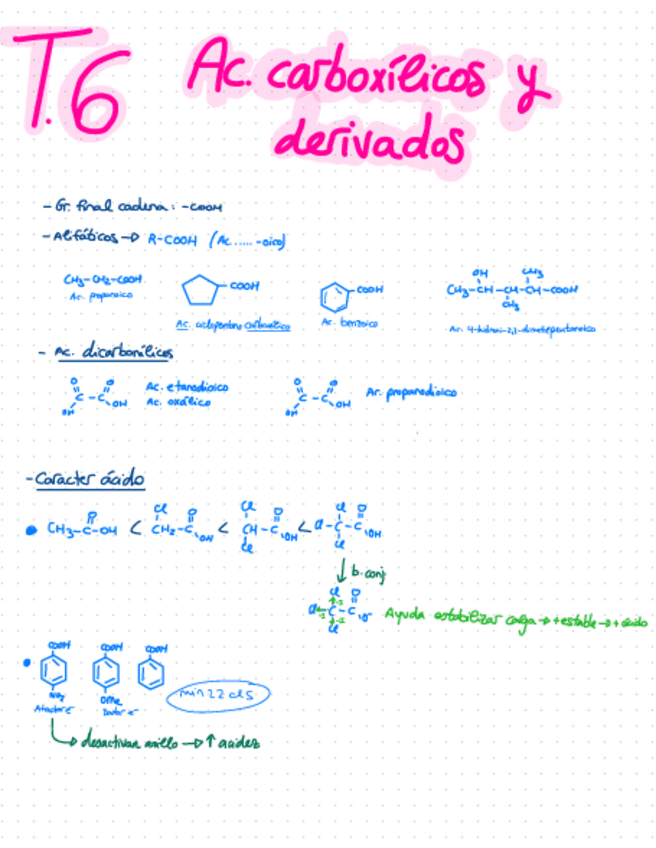 T.6 Ac. carboxílicos y
derivados
- Gr. final cadena: -COOH
- Alifáticos → R-COOH (Ac. ..... -oico)
CH3-CH2-COOH
Ac. propanoico
COOH
Ac. ciclopentano carboxílico
COOH
Ac. benzoico
OH CH3
CH3-CH-CH-CH-COOH
CH3
- Ac. dicarboxílicos
O O
C - C
OH OH
Ac. etanodioico
Ac. oxálico
O O
C - C
OH OH
Ac. propanodioico
- Caracter ácido
Cl O Cl O Cl O
CH3-C-OH < CH2-C OH < CH-C OH < Cl-C-C OH
Cl Cl
↓ b. conj
Cl O
Cl C - C O-
Cl
Ayuda estabilizar carga → + estable → + ácido
COOH COOH COOH
NO2 OMe
min 22 cl 5
desactivan anillo → ↑ acidez